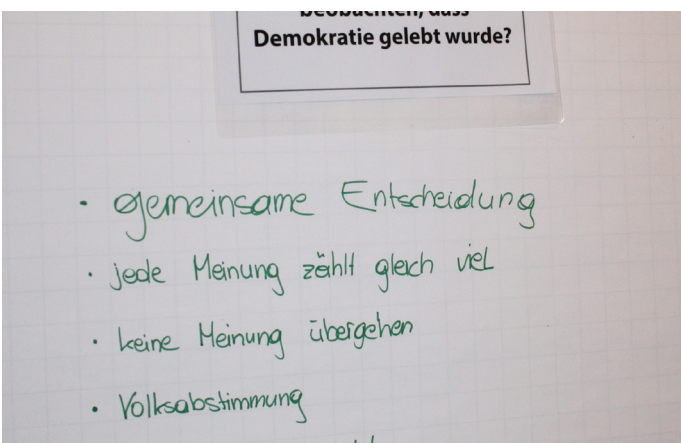 beobachten, dass
Demokratie gelebt wurde?
• gemeinsame Entscheidung
• jede Meinung zählt gleich viel
• keine Meinung übergehen
• Volksabstimmung